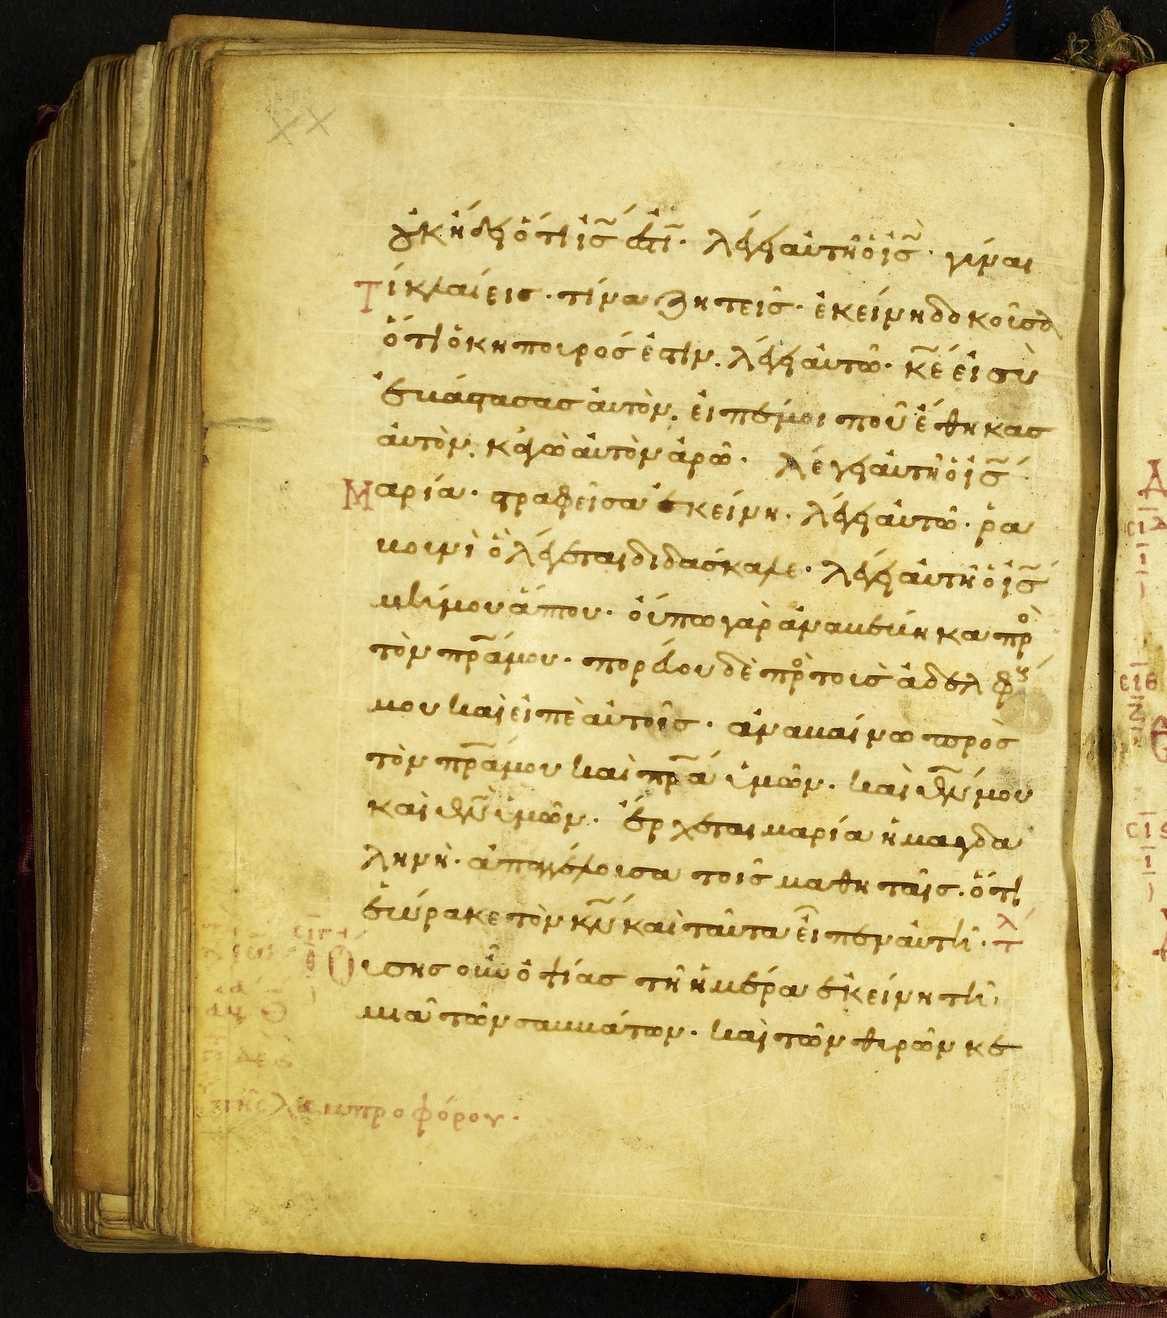 οὐκ ᾔδει ὅτι ις̅ ἐστι. λέγει αὐτῆ ὁ ις̅. γύναι
τί κλαίεις. τίνα ζητεῖς. ἐκείνη δοκοῦσα
ὅτι ὁ κηπουρός ἐστιν. λέγει αὐτῶ. κε̅ εἰ σὺ
ἐβάστασας αὐτὸν. εἰπέ μοι ποῦ ἔθηκας
αὐτὸν. κἀγὼ αὐτὸν ἀρῶ. λέγει αὐτῆ ὁ ις̅
Μαρία. στραφεῖσα ἐκείνη. λέγει αὐτῶ. ρα
βουνὶ ὃ λέγεται διδάσκαλε. λέγει αὐτῆ ὁ ις̅
μή μου ἅπτου. οὔπω γὰρ ἀναβέβηκα πρὸ
τὸν πρ̅α μου. πορεύου δὲ πρὸ τοὺς ἀδελφού
μου καὶ εἰπὲ αὐτοῖς. ἀναβαίνω πρὸς
τὸν πρ̅α μου καὶ πρ̅α ὑμῶν. καὶ θν̅ μου
καὶ θν̅ ὑμῶν. ἔρχεται μαρία ἡ μαγδα
ληνὴ. ἀπαγγέλουσα τοῖς μαθηταῖς. ὅτι
ἑώρακε τὸν κν̅ καὶ ταῦτα εἶπεν αὐτῆ. τλ
Οὔσης οὖν ὀψίας τῆ ἡμέρα ἐκείνη τῆ
μιᾶ τῶν σαββάτων. καὶ τῶν θυρῶν κε
λαμπροφόρου.